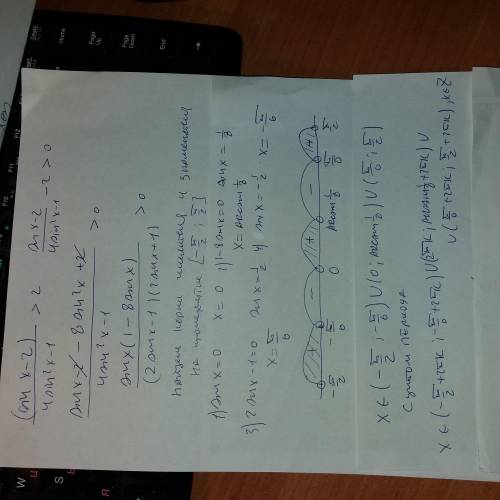 (sin x-2)/(4sin²x-1) > 2   (sin x-2)/(4sin²x-1) -2>0
(sin x-2 - 8sin²x+2)/(4sin²x-1) >0
sin x(1-8sin x)/((2sin x-1)(2sin x+1)) >0
Найдем корни числителя и знаменателя
на промежутке [-π/2; π/2]
1) sin x=0  x=0  2) 1-8sin x=0  sin x=1/8
x=arcsin 1/8
3) 2sin x-1=0  sin x=1/2  4) sin x=-1/2
x=π/6  x=-π/6
-π/2  -π/6  0  arcsin 1/8  π/6  π/2
x∈(-π/2; -π/6)∪(0; arcsin 1/8)∪(π/6; π/2)
С учетом периода
x∈(-π/2+2πk; -π/6+2πk)∪(2πk; arcsin 1/8+2πk)∪
∪(π/6+2πk; π/2+2πk), k∈Z
Home
Page Up
Page Down
End
W